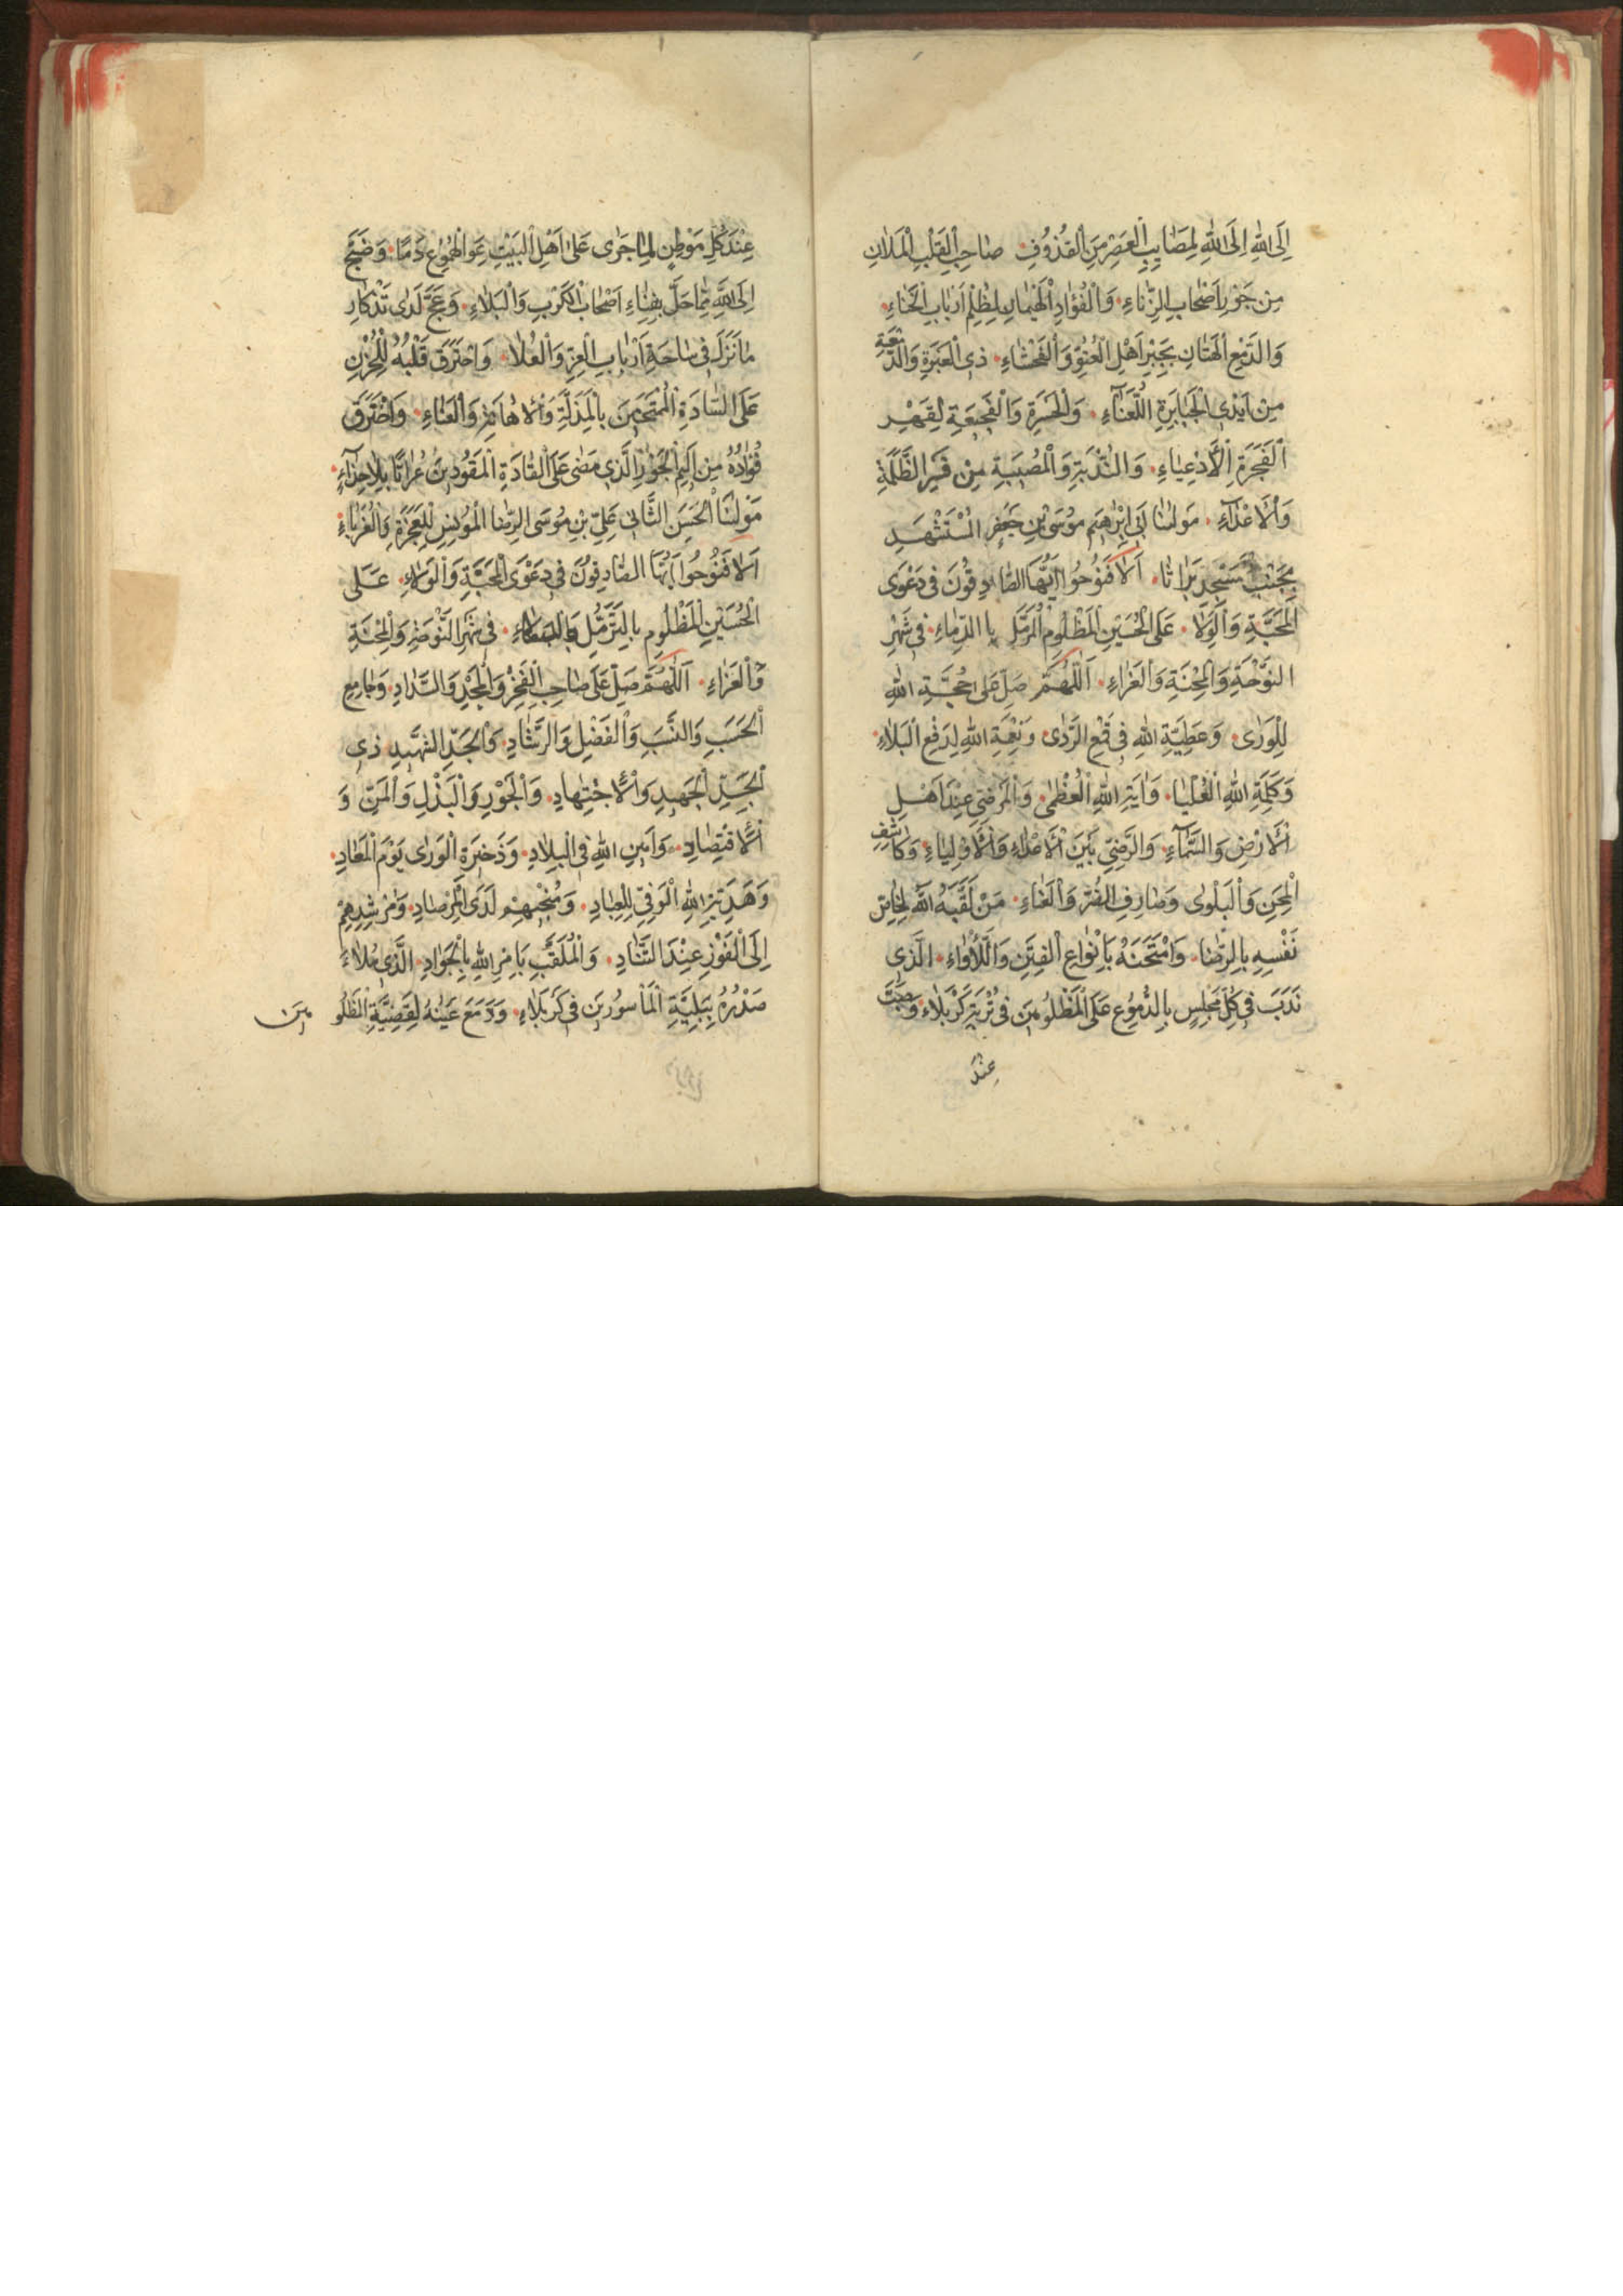 اِلَى اللهِ اِلَى اللهِ لِمَصَايِبِ الْعَصْرِ مِنَ الْقُذُوفِ صَاحِبِ الْقَلْبِ الْمَلَانِ
مِنْ جَوْرِ اَصْحَابِ الزِّنَاءِ وَالْفُؤَادِ الْهَيْمَانِ لِظُلْمِ اَرْبَابِ الْخَنَاءِ
وَالدَّمْعِ الْهَتَانِ بِجَبْرِ اَهْلِ الْعُتُوِّ وَالْفَحْشَاءِ ذِي الْعَبْرَةِ وَالدَّمْعَةِ
مِنْ اَيْدِي الْجَبَابِرَةِ اللُّعَنَاءِ وَالْحَسْرَةِ وَالْفَجِيعَةِ لِقَهْرِ
الْفَجَرَةِ الْاَدْعِيَاءِ وَالنُّدْبَةِ وَالْمُصِيبَةِ مِنْ الظَّلَمَةِ
وَالْاَعْدَاءِ مَوْلٰنَا اَبِي اِبْرٰهِيمَ مُوسَى بْنِ جَعْفَرٍ الْمُسْتَشْهَدِ
بِجَنْبِ مَسْجِدِ بَرَاثَا اَلَا فَنُوحُوا اَيُّهَا الصَّادِقُونَ فِي دَعْوَى
الْمَحَبَّةِ وَالْوَلَا عَلَى الْحُسَيْنِ الْمَظْلُومِ الْمُرَمَّلِ بِالدِّمَاءِ فِي شَهْرِ
النَّوْحَةِ وَالْمِحْنَةِ وَالْعَزَاءِ اَللّٰهُمَّ صَلِّ عَلَى حُجَّةِ اللهِ
لِلْوَرٰى وَعَطِيَّةِ اللهِ فِي قَمْعِ الرَّدٰى وَنِعْمَةِ اللهِ لِدَفْعِ الْبَلَاءِ
وَكَلِمَةِ اللهِ الْعُلْيَا وَاٰيَةِ اللهِ الْعُظْمٰى وَالْمَرْضِيِّ عِنْدَ اَهْلِ
الْاَرْضِ وَالسَّمَآءِ وَالرَّضِيِّ بَيْنَ الْاَعْدَاءِ وَالْاَوْلِيَاءِ وَكَاشِفِ
الْمِحَنِ وَالْبَلْوٰى وَصَارِفِ الضُّرِّ وَالْعَنَاءِ مَنْ لَقَّبَهُ اللهُ لِخَاصِّ
نَفْسِهِ بِالرِّضَا وَامْتَحَنَهُ بِاَنْوَاعِ الْفِتَنِ وَاللَّأْوَاءِ الَّذِي
نَدَبَ فِي كُلِّ مَجْلِسٍ بِالدُّمُوعِ عَلَى الْمَظْلُومِينَ فِي تُرْبَةِ كَرْبَلَاءَ وَصَبَّتَ
عِنْدَ
عِنْدَ كُلِّ مَوْطِنٍ لِمَا جَرٰى عَلٰى اَهْلِ الْبَيْتِ دَمًا وَضَجَّ
اِلَى اللهِ مِمَّا حَلَّ بِفِنَاءِ اَصْحَابِ الْكَرْبِ وَالْبَلَاءِ وَعَجَّ لَدٰى تَذْكَارِ
مَا نَزَلَ فِي سَاحَةِ اَرْبَابِ الْعِزِّ وَالْعُلَا وَاحْتَرَقَ قَلْبُهُ لِلْحُزْنِ
عَلَى السَّادَةِ الْمُمْتَحَنِينَ بِالْمَذَلَّةِ وَالْاِهَانَةِ وَالْعَنَاءِ وَاخْتَرَقَ
فُؤَادُهُ مِنْ اَلِيمِ الْجَوْرِ الَّذِي مَضٰى عَلَى الْقَادَةِ الْمَقُودِينَ عُرَاتًا بِلَا حِذَآءٍ
مَوْلٰنَا الْحَسَنِ الثَّانِي عَلِيِّ بْنِ مُوسَى الرِّضَا الْمُونِسِ لِلْعَجَزَةِ وَالْغُرَبَاءِ
اَلَا فَنُوحُوا اَيُّهَا الصَّادِقُونَ فِي دَعْوَى الْمَحَبَّةِ وَالْوَلَاءِ عَلَى
الْحُسَيْنِ الْمَظْلُومِ بِالتَّزَمُّلِ فِي شَهْرِ النَّوْحَةِ وَالْمِحْنَةِ
وَالْعَزَاءِ اَللّٰهُمَّ صَلِّ عَلَى صَاحِبِ الْفَخْرِ وَالْمَجْدِ وَالسَّدَادِ وَجَامِعِ
الْحَسَبِ وَالنَّسَبِ وَالْفَضْلِ وَالرَّشَادِ وَالْجَدِّ الشَّهِيدِ ذِي
الْجِدِّ الْجَهِيدِ وَالْاِجْتِهَادِ وَالْجَوْدِ وَالْبَذْلِ وَالْمَنِّ وَ
الْاِقْتِصَادِ وَاَمِينِ اللهِ فِي الْبِلَادِ وَذَخِيرَةِ الْوَرٰى يَوْمَ الْمَعَادِ
وَهَدِيَّةِ اللهِ الْوَفِيِّ لِلْعِبَادِ وَمُنْجِيهِمْ لَدَى الْمِرْصَادِ وَمُرْشِدِهِمْ
اِلَى الْفَوْزِ عِنْدَ التَّنَادِ وَالْمُلَقَّبِ بِاَمْرِ اللهِ بِالْجَوَادِ الَّذِي مُلَاءَ
صَدْرُهُ بِبَلِيَّةِ الْمَأْسُورِينَ فِي كَرْبَلَاءَ وَدَمَعَ عَيْنُهُ لِقَضِيَّةِ الْمَظْلُو
مِينَ